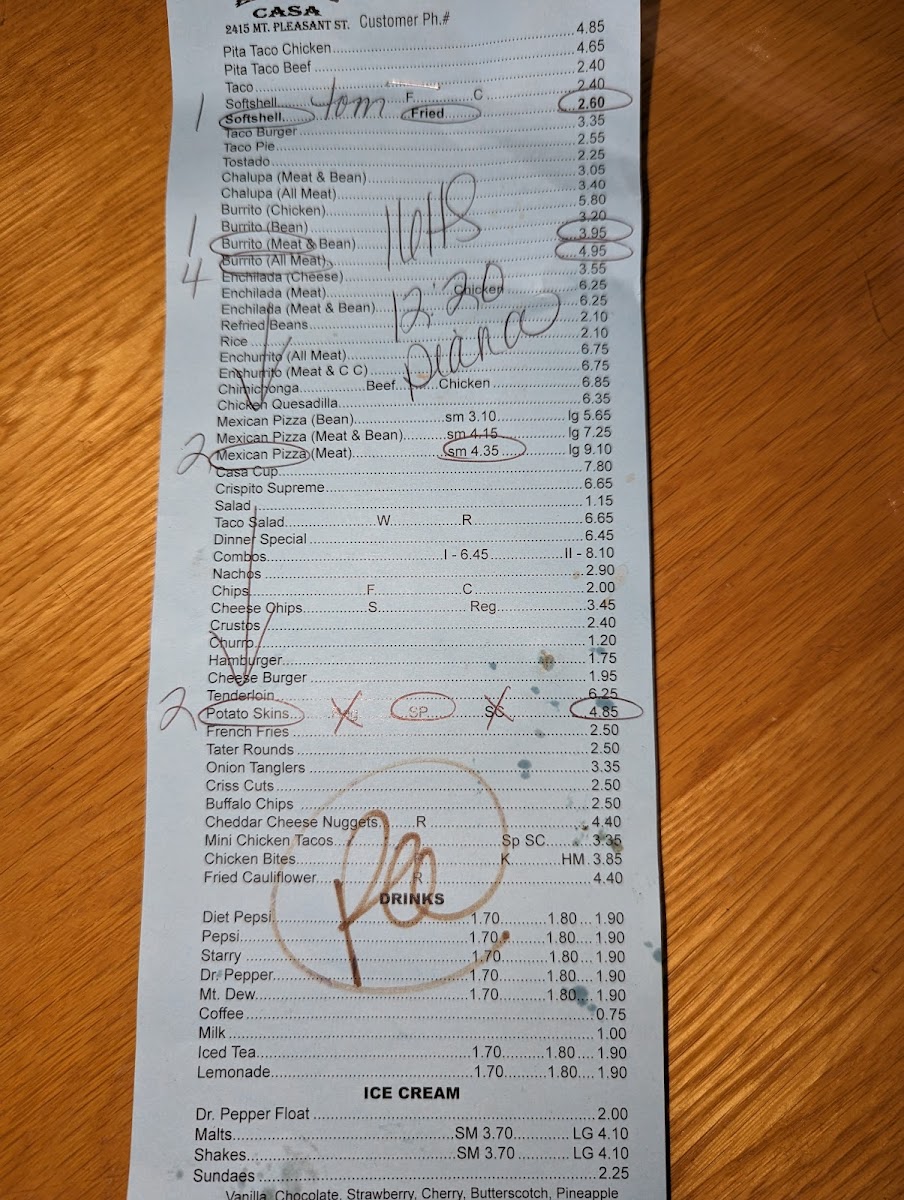 CASA
2415 MT. PLEASANT ST. Customer Ph.#
Pita Taco Chicken 4.85
Pita Taco Beef 4.65
Taco 2.40
Softshell F C 2.40
1 Softshell Tom Fried 2.60
Taco Burger 3.35
Taco Pie 2.55
Tostado 2.25
Chalupa (Meat & Bean) 3.05
Chalupa (All Meat) 3.40
Burrito (Chicken) 5.80
Burrito (Bean) 3.20
1 Burrito (Meat & Bean) 3.95
4 Burrito (All Meat) 4.95
Enchilada (Cheese) 3.55
Enchilada (Meat) Chicken 6.25
Enchilada (Meat & Bean) 6.25
12:20
Refried Beans 2.10
Rice 2.10
Enchurrito (All Meat) 6.75
Enchurrito (Meat & C C) 6.75
Chimichonga Beef Chicken 6.85
Chicken Quesadilla 6.35
Mexican Pizza (Bean) sm 3.10 lg 5.65
Mexican Pizza (Meat & Bean) sm 4.15 lg 7.25
2 Mexican Pizza (Meat) sm 4.35 lg 9.10
Casa Cup 7.80
Crispito Supreme 6.65
Salad 1.15
Taco Salad W R 6.65
Dinner Special 6.45
Combos I - 6.45 II - 8.10
Nachos 2.90
Chips F C 2.00
Cheese Chips S Reg 3.45
Crustos 2.40
Churro 1.20
Hamburger 1.75
Cheese Burger 1.95
Tenderloin 6.25
2 Potato Skins SP SC 4.85
French Fries 2.50
Tater Rounds 2.50
Onion Tanglers 3.35
Criss Cuts 2.50
Buffalo Chips 2.50
Cheddar Cheese Nuggets R 4.40
Mini Chicken Tacos Sp SC 3.35
Chicken Bites K HM 3.85
Fried Cauliflower R 4.40
DRINKS
Diet Pepsi 1.70 1.80 1.90
Pepsi 1.70 1.80 1.90
Starry 1.70 1.80 1.90
Dr. Pepper 1.70 1.80 1.90
Mt. Dew 1.70 1.80 1.90
Coffee 0.75
Milk 1.00
Iced Tea 1.70 1.80 1.90
Lemonade 1.70 1.80 1.90
ICE CREAM
Dr. Pepper Float 2.00
Malts SM 3.70 LG 4.10
Shakes SM 3.70 LG 4.10
Sundaes 2.25
Vanilla, Chocolate, Strawberry, Cherry, Butterscotch, Pineapple